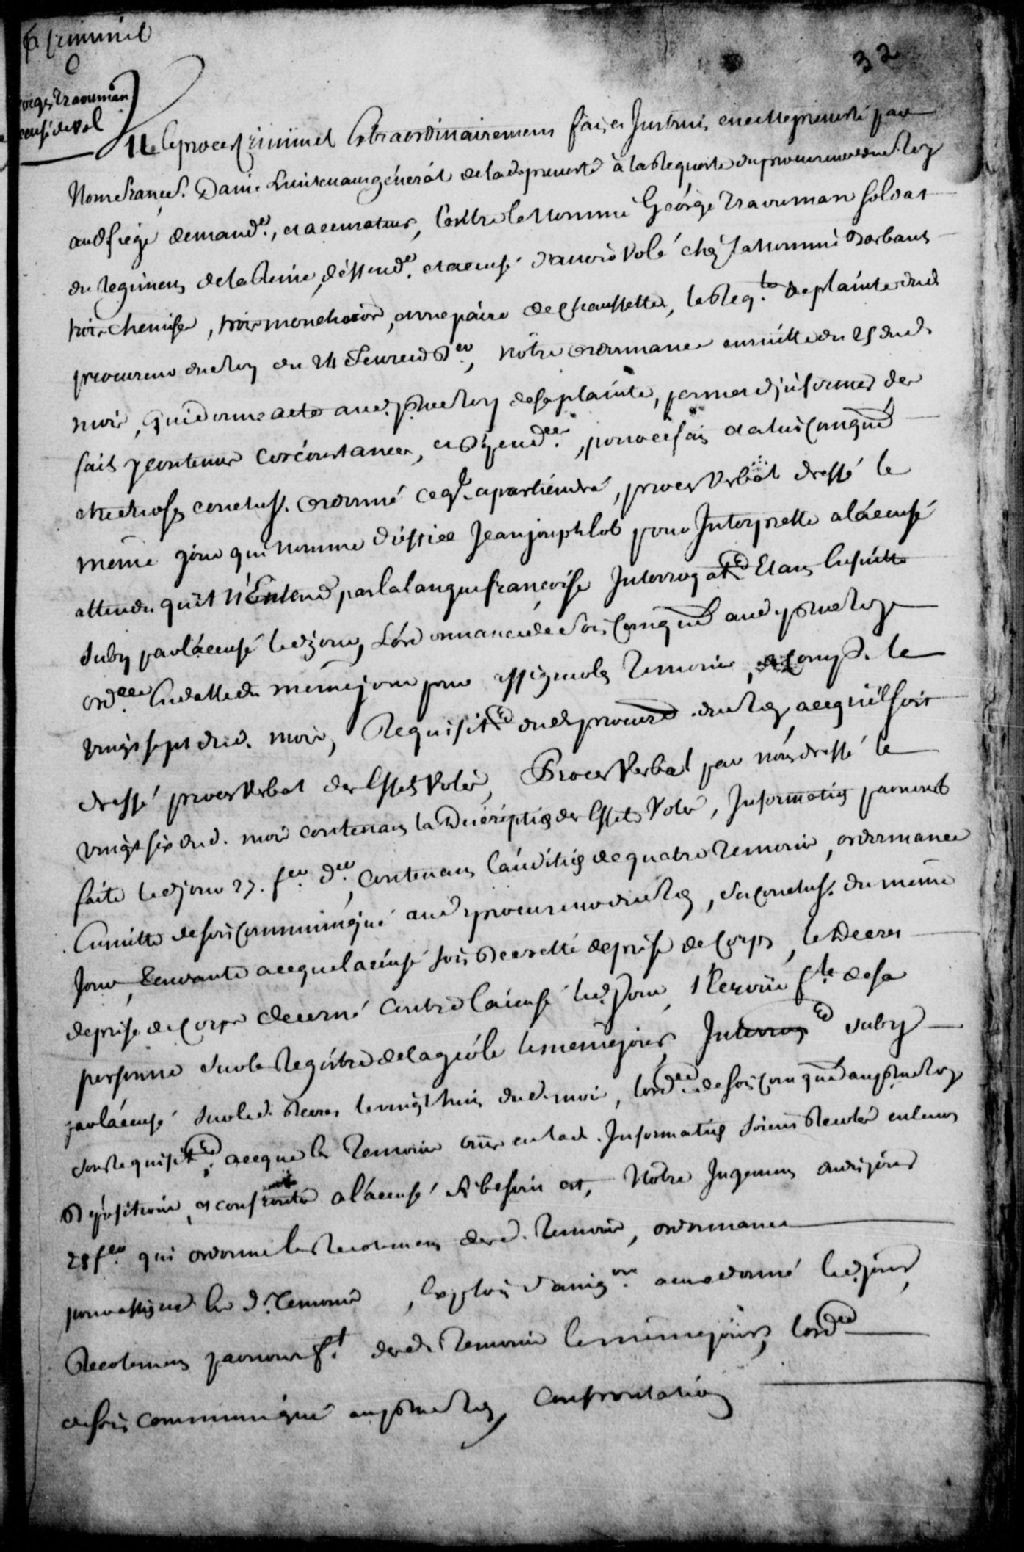 criminel
32
Georges Traouman
accusé de vol
Vu Le procès Criminel Extraordinairement fait et Instruit en cette prevosté par
Nous françois Daine Lieutenant général de lad prevosté à la Requeste du procureur du Roy
aud siege demandr, et accusateur, Contre le Nommé George Traouman soldat
du regiment de la Reine, déffendr. et accusé d'avoir volé chés la Nommé Barbant
trois chemises, trois mouchoirs, et une paire de Chaussettes, la Reqte. de plainte dud
procureur du Roy du 24 fevrier dr, Nôtre ordonnance ensuitte du 25 dud
mois, qui donne acte aud. pr du Roy de sa plainte, permet d'informer des
faits y contenus circonstances, et dependces., pour ce fait et a lui comuniqué
être choses conclus. Ordonné ce ql. apartiendra, procès Verbal dressé le
même jour qui nomme d'office Jean joseph lob pour Interprette a l'accusé
attendu qu'il N'Entend pas la langue françoise Interrogatre Etant Ensuitte
suby par l'accusé led jour, L'ordonnance de soit comuniqué aud pr du Roy
ordce Ensuitte du même jour pour assigner les Temoins, a Comp. le
vingt sept dud. mois, Requisitre dud procureur du Roy a ce qu'il soit
dressé procès Verbal des Effets Volés, Procès Verbal par nous dressé le
vingt six dud. mois contenant la Déscription des Effets Volés, Information par nous
faite led jour 27. fer. dr, contenant l'audition de quatre Temoins, ordonnance
Ensuitte de soit Communiqué aud procureur du Roy, Sa conclus. du même
Jour, Tendante a ce que l'accusé soit Decretté de prise de Corps, le Decret
de prise de Corps decerné contre l'accusé led Jour, l'Ecrouë fte de sa
personne sur le Registre de la geôle le même jour, Interrogre suby
par l'accusé sur led. Decret le vingt huit dud. mois, l'ordce de soit comuniqué au pr du Roy
son Requisitre, a ce que les Temoins ouis en lad. Information soient Recolés en leurs
Dépositions, et confrontés a l'accusé si besoin est, Notre Jugement dud jour
28 fer. qui ordonne le Recolement desd. Temoins, ordonnance
pour assigner les d. Temoins, l'exploit d'assigon. a eux donné led jour,
Recolement par nous ft. desd. Temoins le même jour, l'ordce
de soit communiqué au pr du Roy, Confrontation